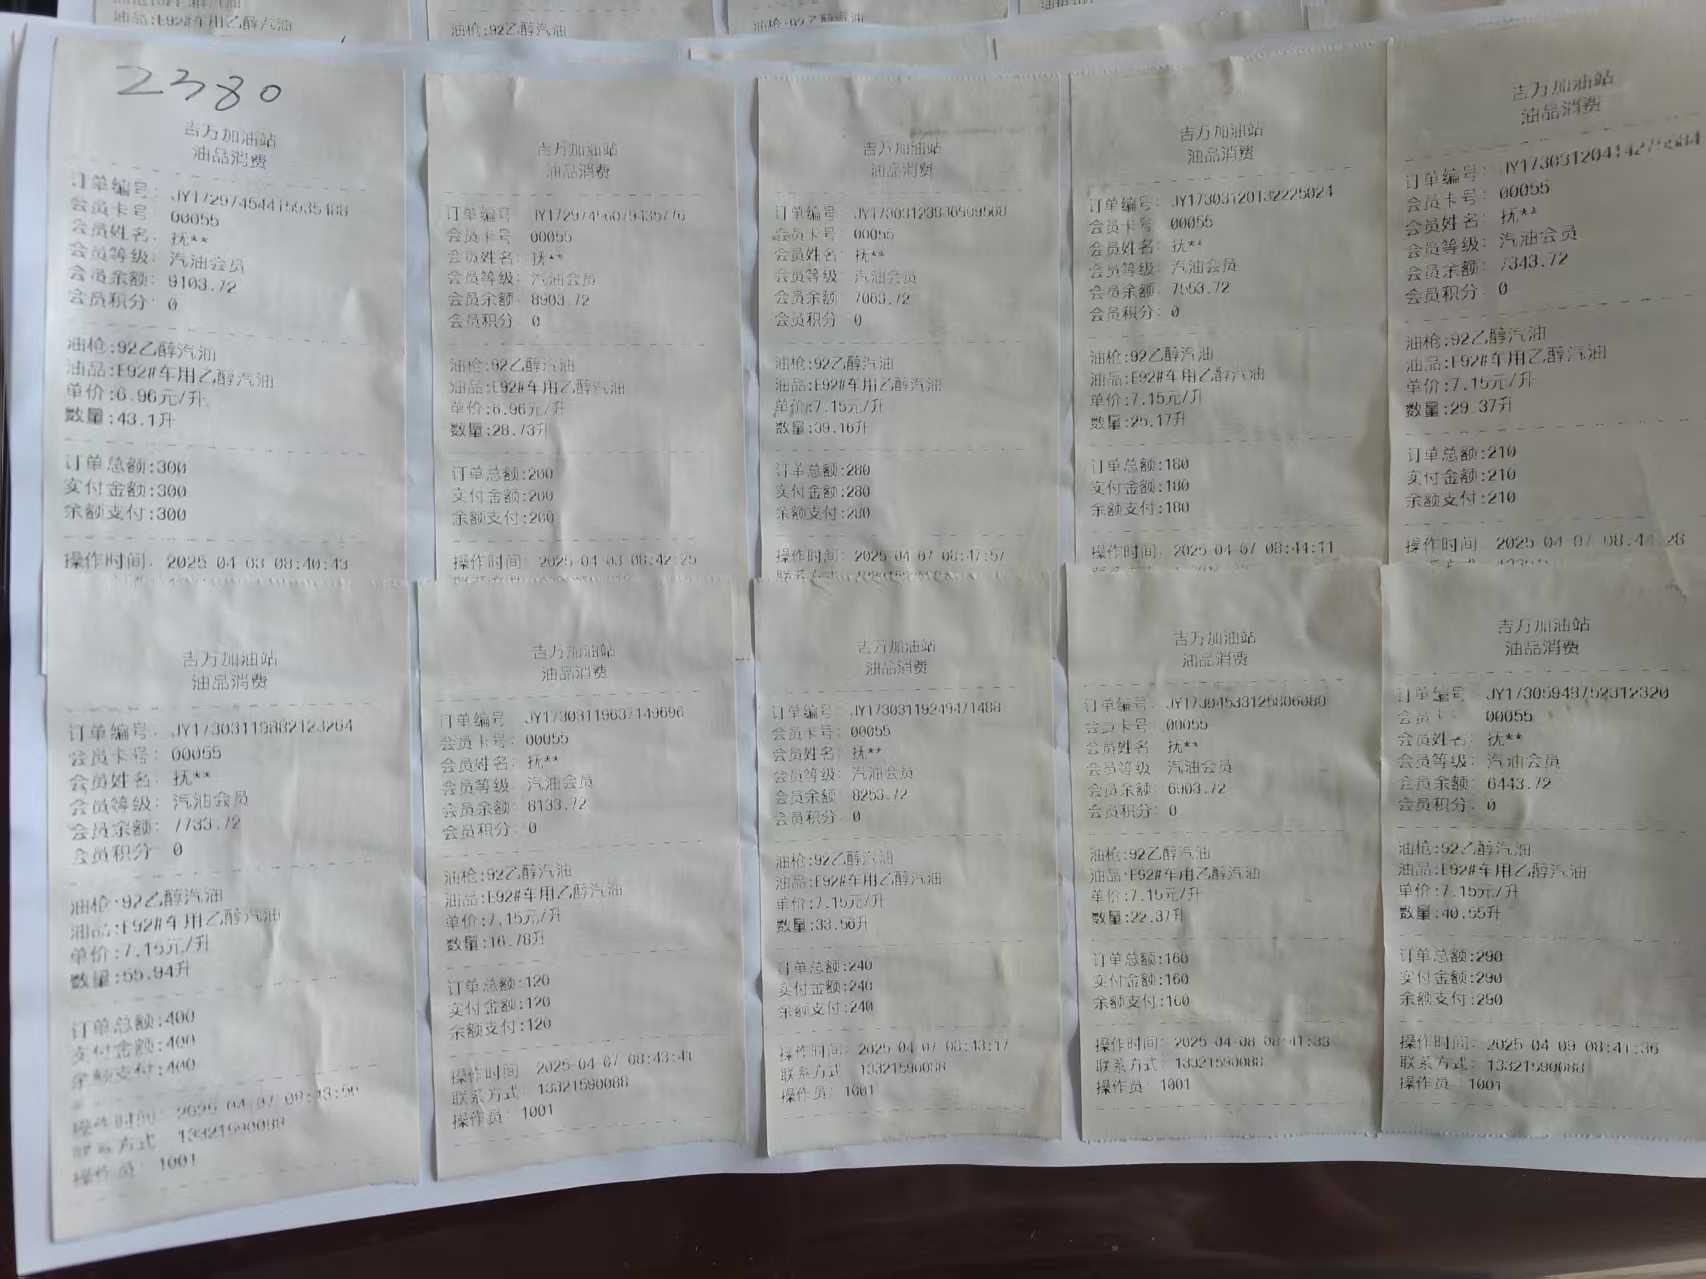 油品:E92#车用乙醇汽油
油枪:92乙醇汽油
油枪:92乙醇汽油
2380
吉万加油站
油品消费
订单编号: JY17297454415935488
会员卡号: 00055
会员姓名: 抚**
会员等级: 汽油会员
会员余额: 9103.72
会员积分: 0
油枪:92乙醇汽油
油品:E92#车用乙醇汽油
单价:6.96元/升
数量:43.1升
订单总额:300
实付金额:300
余额支付:300
操作时间: 2025-04-03 08:40:43
吉万加油站
油品消费
订单编号: JY17297456079435776
会员卡号: 00055
会员姓名: 抚**
会员等级: 汽油会员
会员余额: 8903.72
会员积分: 0
油枪:92乙醇汽油
油品:E92#车用乙醇汽油
单价:6.96元/升
数量:28.73升
订单总额:200
实付金额:200
余额支付:200
操作时间: 2025-04-03 08:42:25
吉万加油站
油品消费
订单编号: JY17303123836909568
会员卡号: 00055
会员姓名: 抚**
会员等级: 汽油会员
会员余额: 7063.72
会员积分: 0
油枪:92乙醇汽油
油品:E92#车用乙醇汽油
单价:7.15元/升
数量:39.16升
订单总额:280
实付金额:280
余额支付:280
操作时间: 2025-04-07 08:47:57
吉万加油站
油品消费
订单编号: JY17303120132225024
会员卡号: 00055
会员姓名: 抚**
会员等级: 汽油会员
会员余额: 7553.72
会员积分: 0
油枪:92乙醇汽油
油品:E92#车用乙醇汽油
单价:7.15元/升
数量:25.17升
订单总额:180
实付金额:180
余额支付:180
操作时间: 2025-04-07 08:44:11
吉万加油站
油品消费
订单编号:
会员卡号: 00055
会员姓名: 抚**
会员等级: 汽油会员
会员余额: 7343.72
会员积分: 0
油枪:92乙醇汽油
油品:E92#车用乙醇汽油
单价:7.15元/升
数量:29.37升
订单总额:210
实付金额:210
余额支付:210
操作时间: 2025-04-07 08:44:28
吉万加油站
油品消费
订单编号: JY17303119882123264
会员卡号: 00055
会员姓名: 抚**
会员等级: 汽油会员
会员余额: 7733.72
会员积分: 0
油枪:92乙醇汽油
油品:E92#车用乙醇汽油
单价:7.15元/升
数量:55.94升
订单总额:400
实付金额:400
余额支付:400
操作时间: 2025-04-07 08:43:56
联系方式: 13321590088
操作员: 1001
吉万加油站
油品消费
订单编号: JY17303119637149696
会员卡号: 00055
会员姓名: 抚**
会员等级: 汽油会员
会员余额: 8133.72
会员积分: 0
油枪:92乙醇汽油
油品:E92#车用乙醇汽油
单价:7.15元/升
数量:16.78升
订单总额:120
实付金额:120
余额支付:120
操作时间: 2025-04-07 08:43:41
联系方式: 13321590088
操作员: 1001
吉万加油站
油品消费
订单编号: JY17303119249471488
会员卡号: 00055
会员姓名: 抚**
会员等级: 汽油会员
会员余额: 8253.72
会员积分: 0
油枪:92乙醇汽油
油品:E92#车用乙醇汽油
单价:7.15元/升
数量:33.56升
订单总额:240
实付金额:240
余额支付:240
操作时间: 2025-04-07 08:43:17
联系方式: 13321590088
操作员: 1001
吉万加油站
油品消费
订单编号: JY17304533125806080
会员卡号: 00055
会员姓名: 抚**
会员等级: 汽油会员
会员余额: 6903.72
会员积分: 0
油枪:92乙醇汽油
油品:E92#车用乙醇汽油
单价:7.15元/升
数量:22.37升
订单总额:160
实付金额:160
余额支付:160
操作时间: 2025-04-08 08:41:33
联系方式: 13321590088
操作员: 1001
吉万加油站
油品消费
订单编号: JY17305948752312320
会员卡号: 00055
会员姓名: 抚**
会员等级: 汽油会员
会员余额: 6443.72
会员积分: 0
油枪:92乙醇汽油
油品:E92#车用乙醇汽油
单价:7.15元/升
数量:40.55升
订单总额:290
实付金额:290
余额支付:290
操作时间: 2025-04-09 08:41:36
联系方式: 13321590088
操作员: 1001